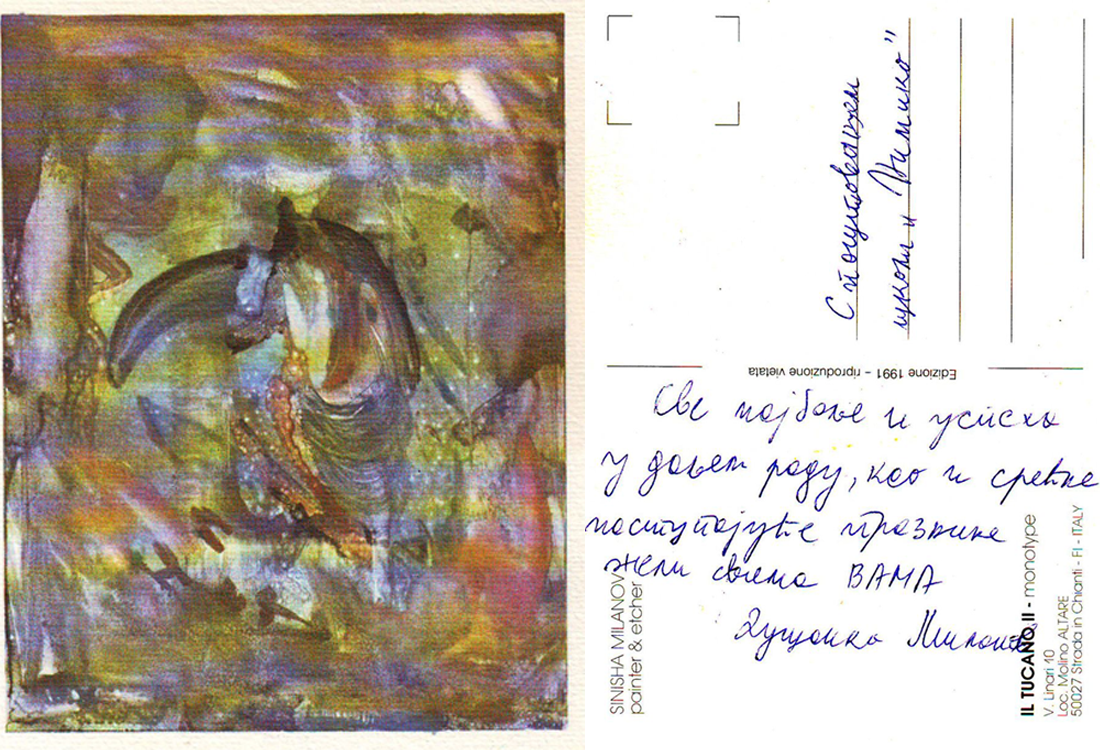 С поштовањем
школи и
Edizione 1991 – riproduzione vietata
Све најбоље и успеха
у даљем раду, као и срећне
наступајуће празнике
жели свима ВАМА
Душанка
SINISHA MILANOV
painter & etcher
IL TUCANO II - monotype
V. Linari 10
Loc. Molino ALTARE
50027 Strada in Chianti - FI - ITALY